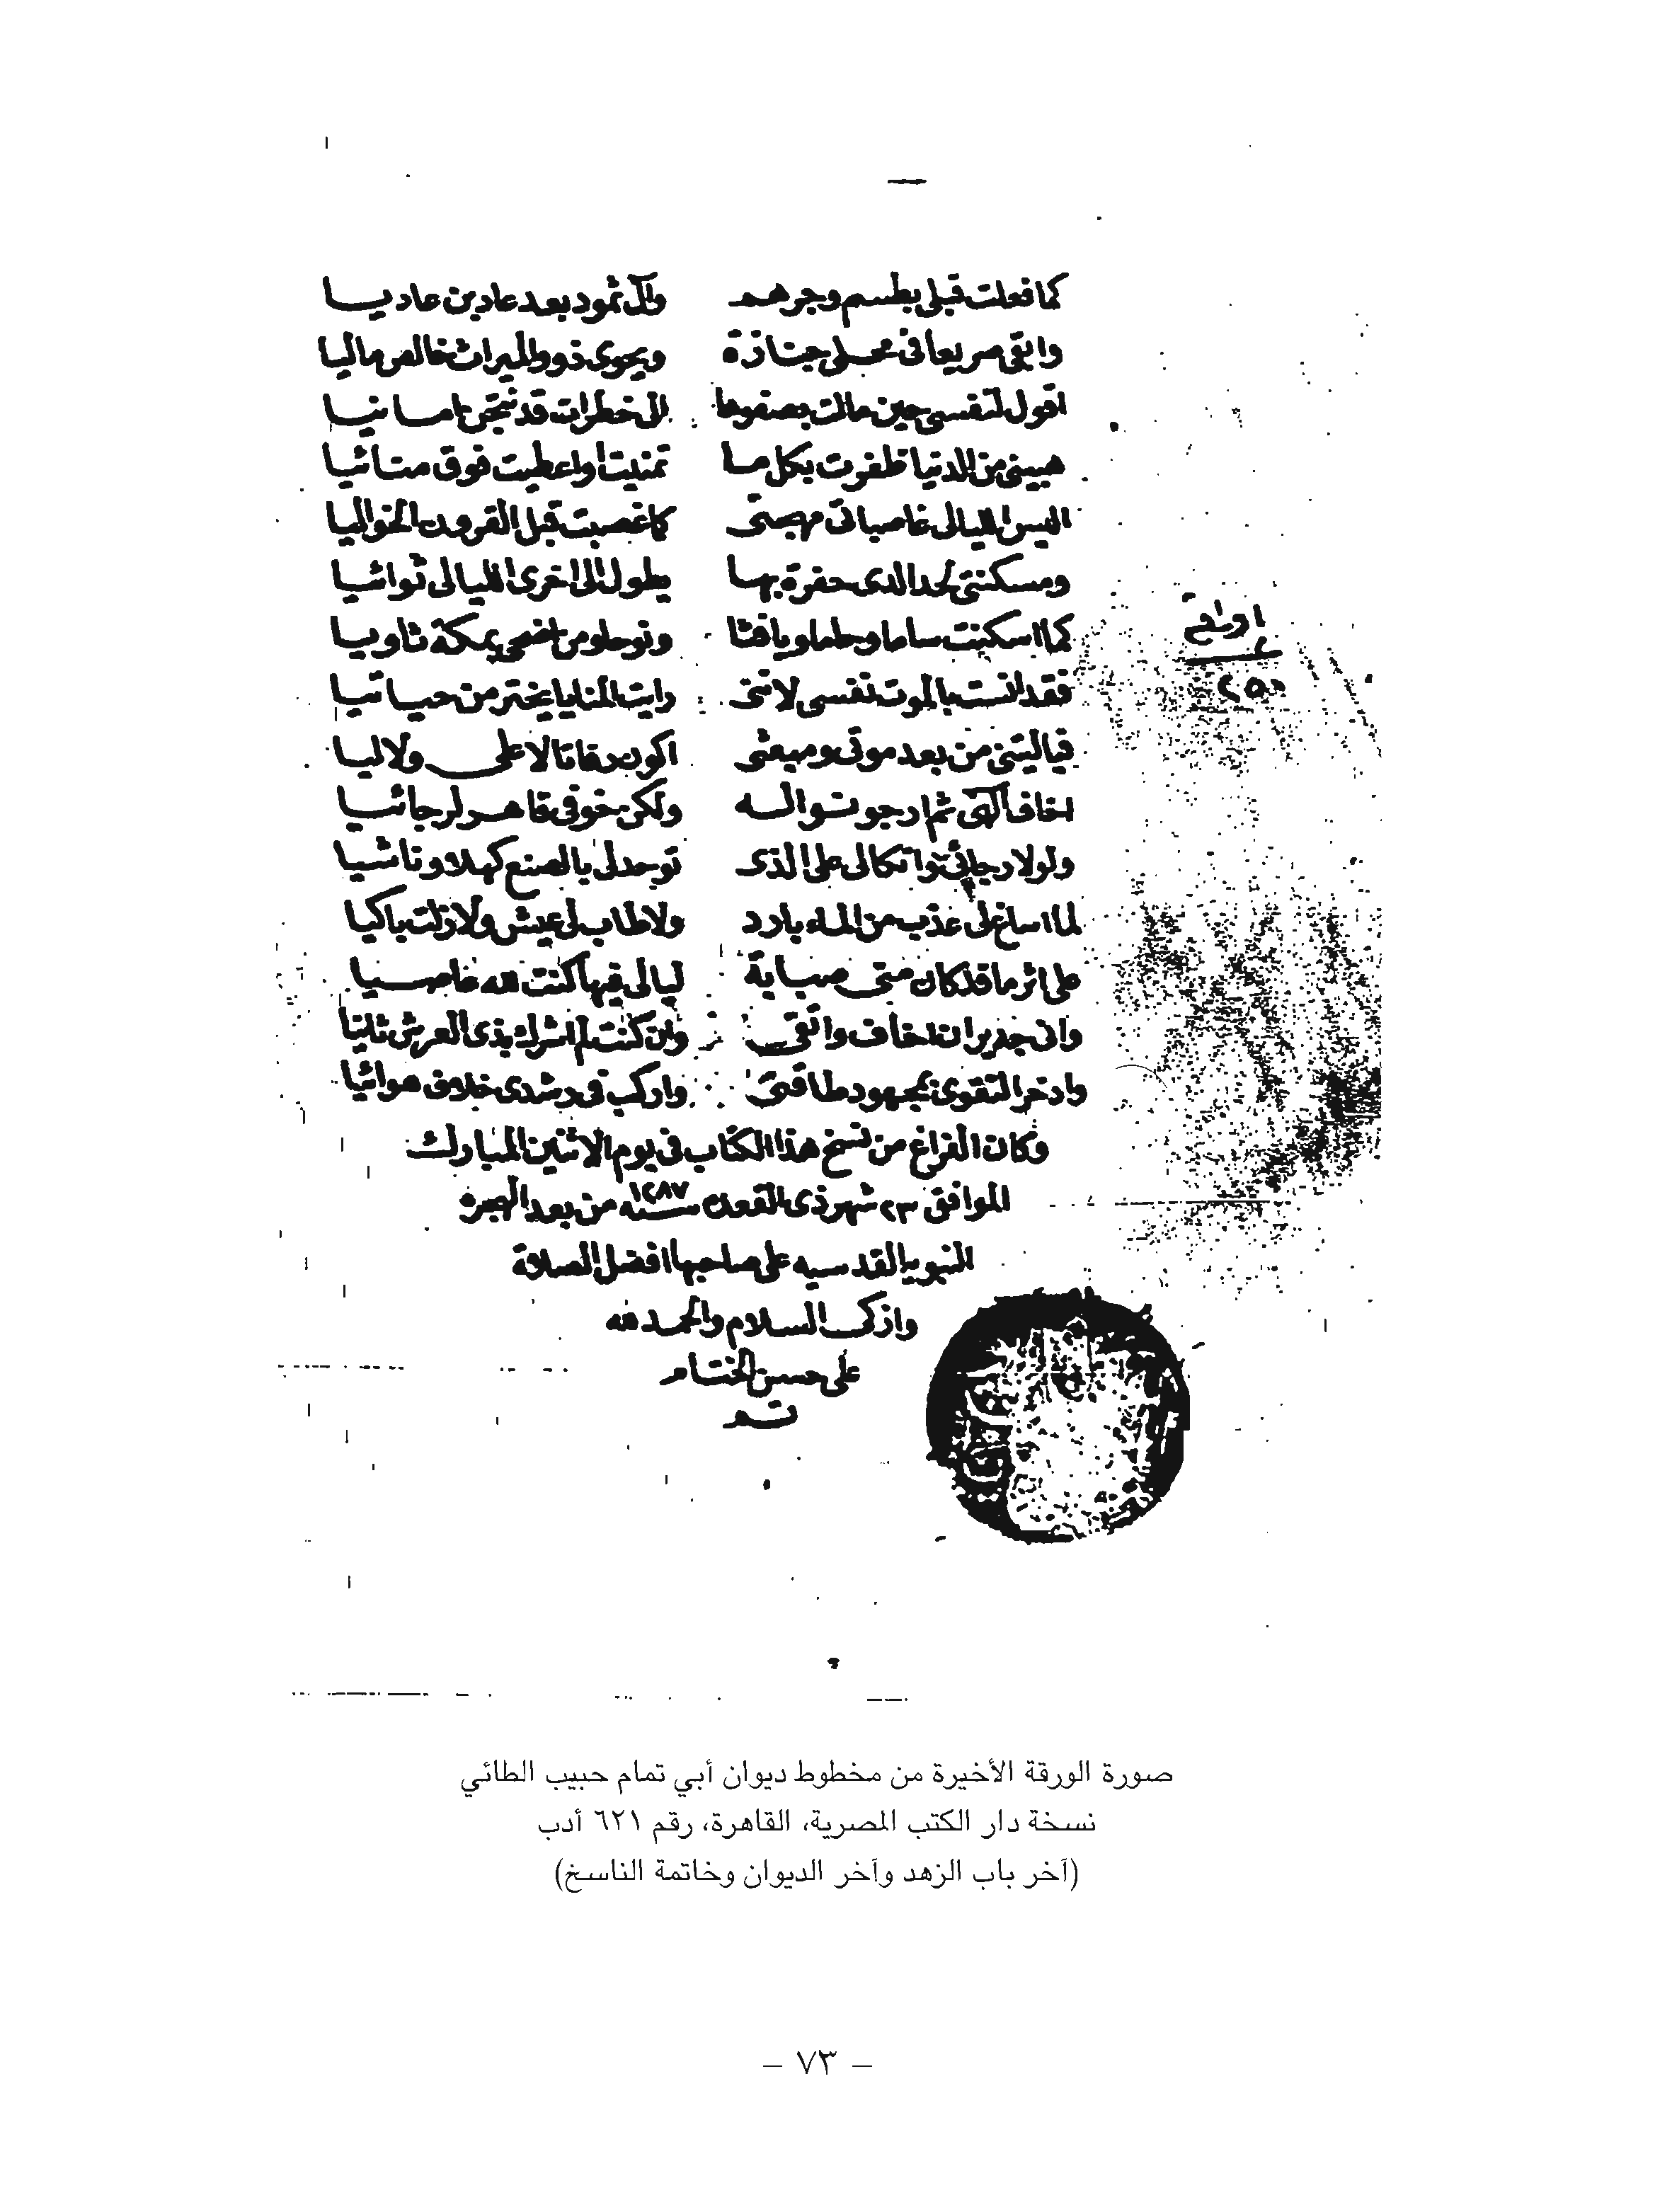 كما فعلت قبلى بطسم وجرهم والآل ثمود بعد عاد بن عاديا
وابقى صريعا فى محلى جنازة ويحوى ذوو الميراث خالص ماليا
اقول لنفسى حين مالت بصغوها الى خطرات قد نتجن امانيا
هبينى من الدنيا ظفرت بكل ما تمنيت او اعطيت فوق متائيا
اليس الليالى غاصباتى مهجتى كما غصبت قبل القرون الخواليا
ومسكنتى لحدا لدى حفرة بها يطول الى اخرى الليالى ثوائيا
كما اسكنت ساما وحاما ويافثا ونوحا ومن اضحى بمكة ثاويا
فقد انست بالموت نفسى لاننى رايت المنايا يخترمن حياتيا
فياليتنى من بعد موتى ومبعثى اكون رفاتا لا على ولا ليا
اخاف الهى ثم ارجو نواله ولكن خوفى قاهر لرجائيا
ولولا رجائى واتكالى على الذى توحد لى بالصنع كهلا وناشيا
لما اساغ لى عذب من الماء بارد ولا طاب لى عيش ولا زلت باكيا
على اثر ما قد كان منى صبابة ليالى فيها كنت لله عاصيا
وانى جدير ان اخاف واتقى وان كنت لم اشرك بذى العرش ثانيا
وادخر التقوى بمجهود طاقتى واركب فى رشدى خلاف هوائيا
اوراق
٢٥٥
وكان الفراغ من نسخ هذا الكتاب فى يوم الاثنين المبارك
الموافق ٢٣ شهر ذى القعدة سنه ١٢٨٧ من بعد الهجره
النبويه القدسيه على صاحبها افضل الصلاة
وازكى السلام والحمد لله
على حسن الختام
تم
صورة الورقة الأخيرة من مخطوط ديوان أبي تمام حبيب الطائي
نسخة دار الكتب المصرية، القاهرة، رقم ٦٢١ أدب
(آخر باب الزهد وآخر الديوان وخاتمة الناسخ)
– ٧٣ –